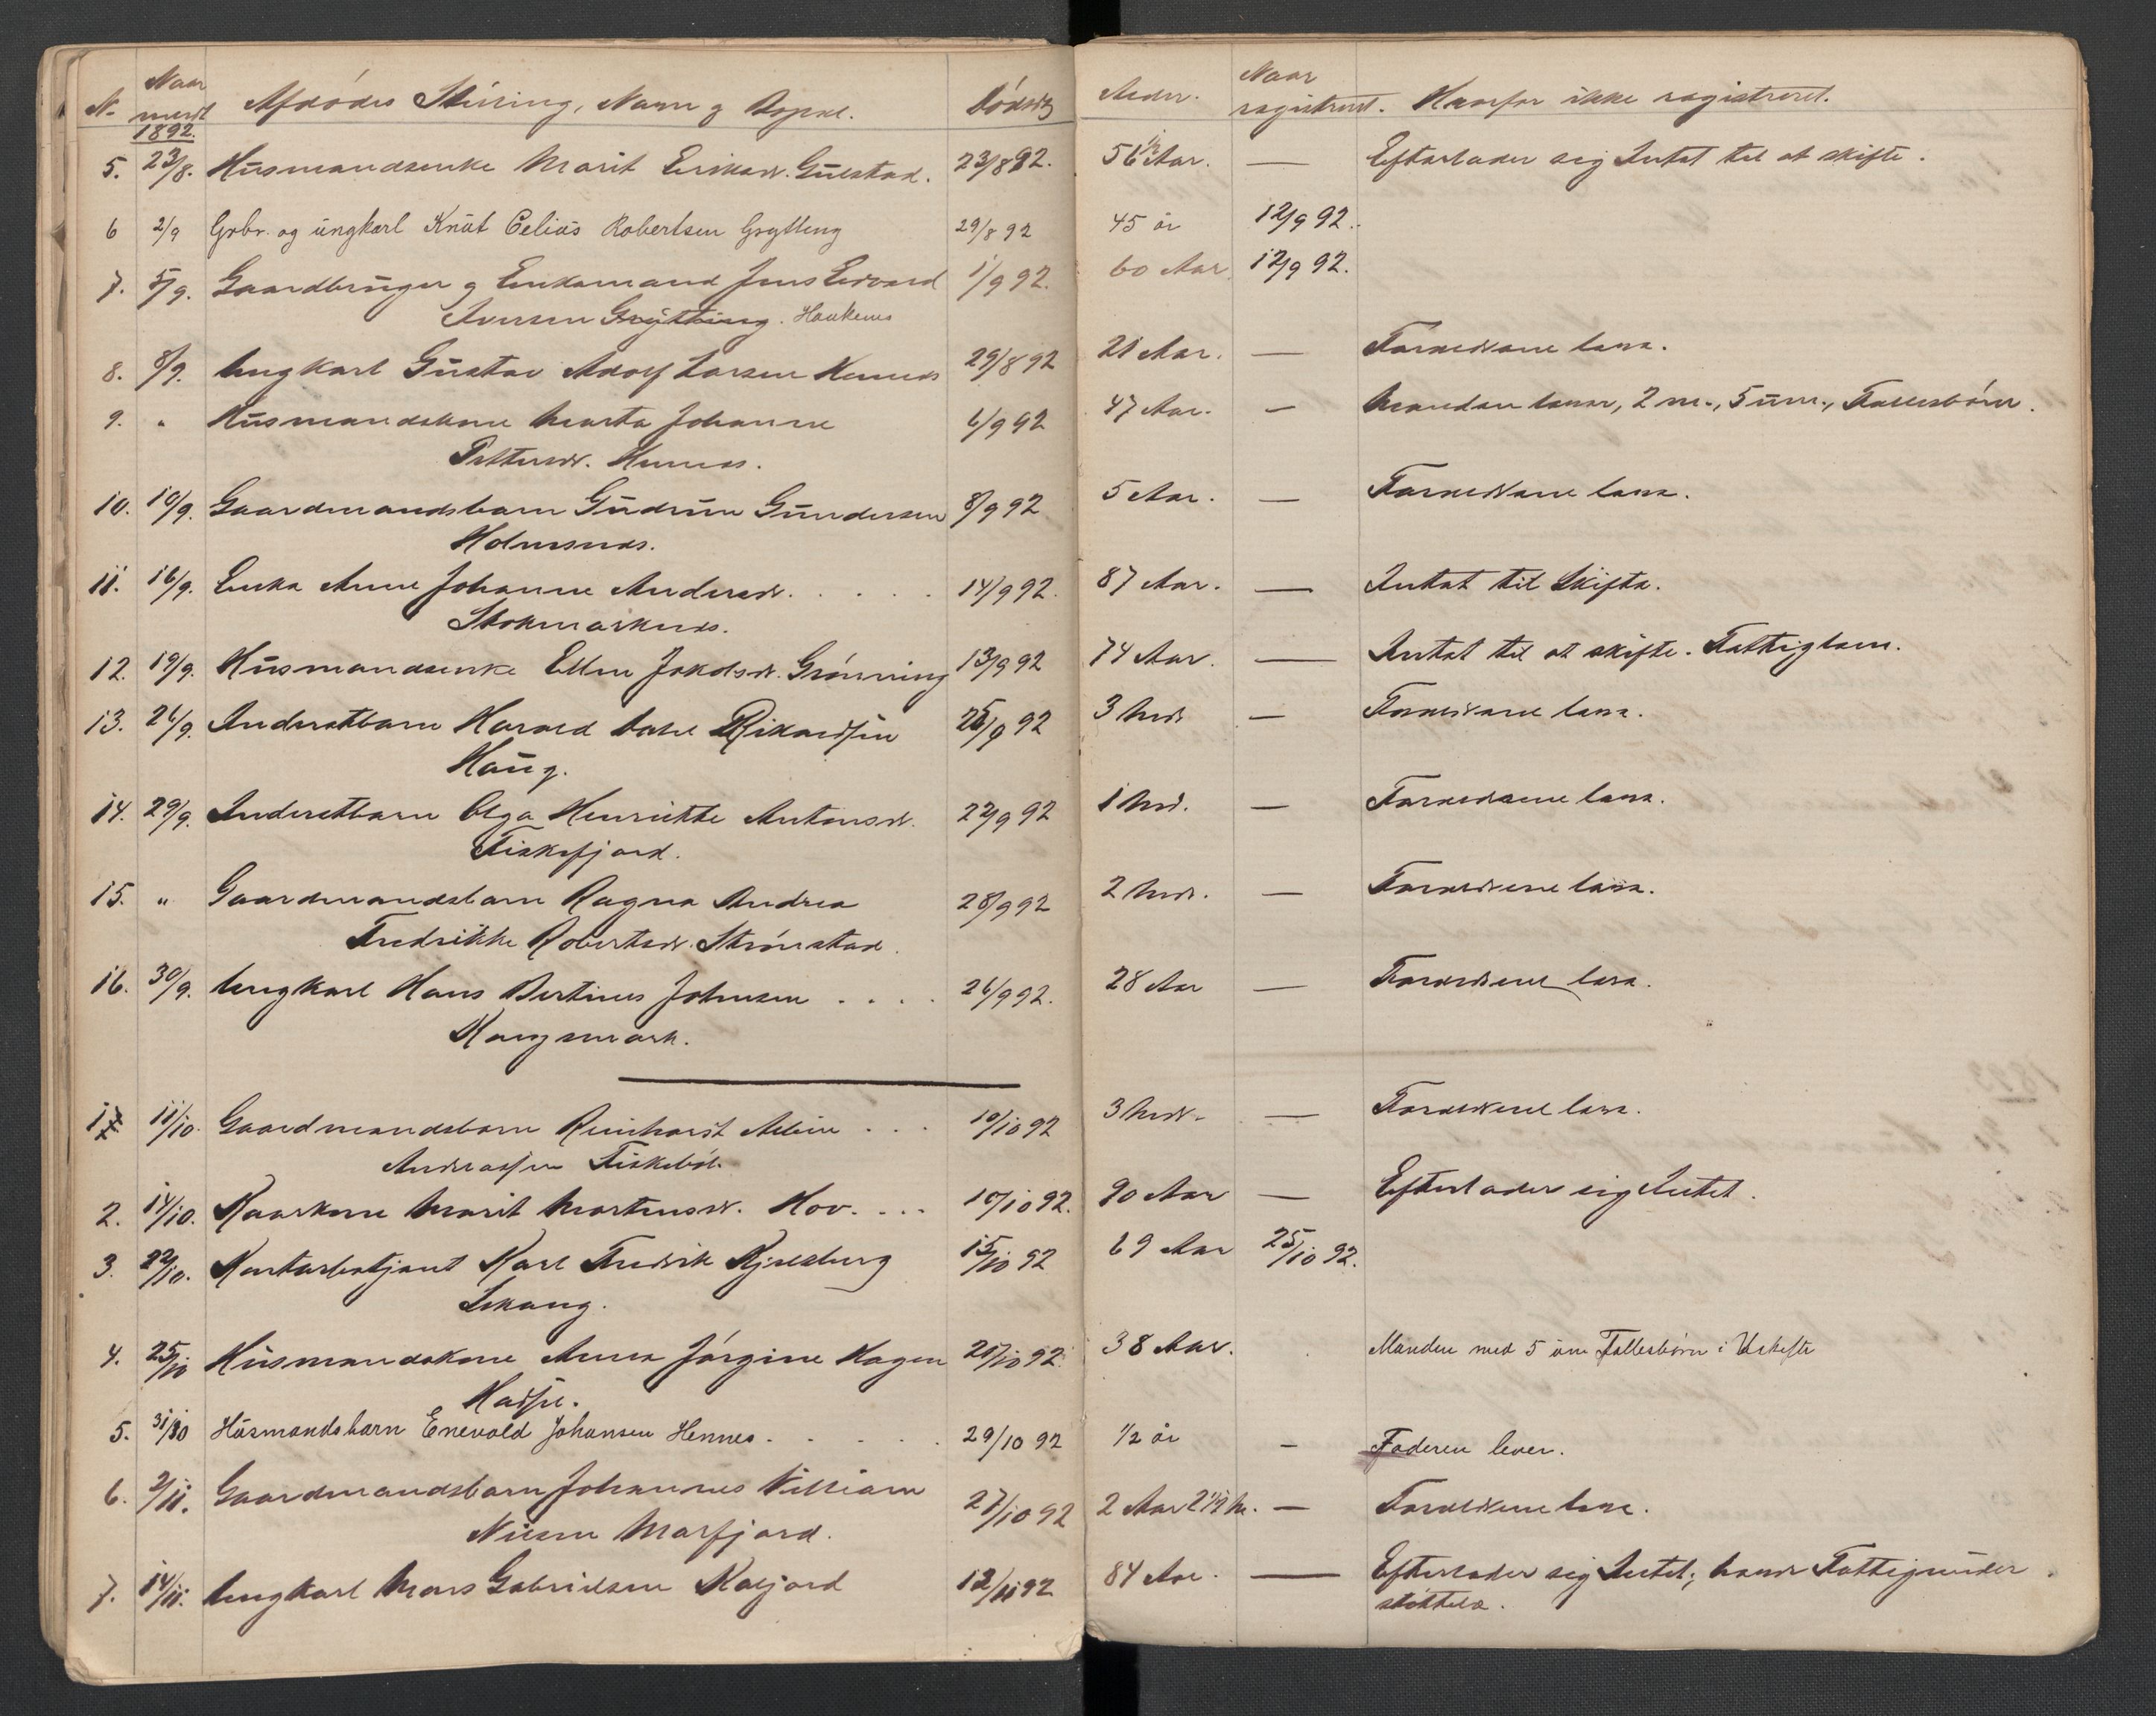 N. Naar meldt Afdödes Stilling, Navn og Bopæl. Dödsdg Alder. Naar registreret. Hvorfor ikke registreret.
1892.
5. 23/8. Husmandsenke Marit Eriksd. Guldstad. 23/8 92. 56 1/2 Aar. — Efterlader sig Intet til at skifte.
6 2/9 Grbr. og ungkarl Knut Celius Robertsen Grytting 29/8 92 45 år 12/9 92.
7. 5/9. Gaardbruger og Enkemand Jens Edvard 1/9 92. 60 Aar 12/9 92.
Iversen Grytting. Haukenes
8. 8/9. Ungkarl Gustav Adolf Larsen Hennes 29/8 92 21 Aar. — Forældrene leve.
9. " Husmandskone Marta Johanne 6/9 92 47 Aar. — Manden lever, 2 m., 5 um., Fællesbörn.
Pettersd. Hennes.
10. 10/9. Gaardmandsbarn Gudrun Gundersen 8/9 92 5 Aar. — Forældrene leve.
Holmsnes.
11. 16/9. Enke Anne Johanne Andersd. . . . . . 14/9 92. 87 Aar. — Intet til Skifte.
Stokmarknes.
12. 19/9. Husmandsenke Ellen Jakobsd. Grönning 13/9 92 74 Aar. — Intet til at skifte. Fattiglem.
13. 26/9. Inderstbarn Harald Dahl Rikardsen 25/9 92 3 Md. — Forældrene leve.
Haug.
14. 29/9. Inderstbarn Olga Henriette Antonsd. 22/9 92 1 Md. — Forældrene leve.
Fiskfjord.
15. " Gaardmandsbarn Ragna Andrea 28/9 92 2 Md. — Forældrene leve.
Fredrikke Robertsd. Strönstad.
16. 30/9. Ungkarl Hans Bertines Johnsen . . . . 26/9 92. 28 Aar — Forældrene leve.
Kongsmark.
1. 11/10. Gaardmandsbarn Reinhardt Albin . . . 10/10 92 3 Md. — Forældrene leve.
Andreassen Fiskeböl.
2. 14/10. Kaarkone Marit Mortensd. Hov. . . . 10/10 92. 90 Aar — Efterlader sig Intet.
3. 22/10. Karl Fredrik Kjeldberg 15/10 92 69 Aar 25/10 92.
Sekang.
4. 25/10 Husmandskone Anna Jörgine Hagen 20/10 92. 38 Aar. Manden med 5 um Fællesbörn i Uskifte
Hadsel.
5. 31/10 Husmandsbarn Enevold Johansen Hennes. . . . . . 29/10 92 1/2 år — Faderen lever.
6. 2/11. Gaardmandsbarn Johannes Villiam 27/10 92 2 Aar 2 1/2 M. — Forældrene leve.
Nilsen Morfjord.
7. 14/11. Ungkarl Mons Gabrielsen Kaljord 12/11 92 84 Aar. — Efterlader sig Intet; havde Fattigunder
stöttelse.